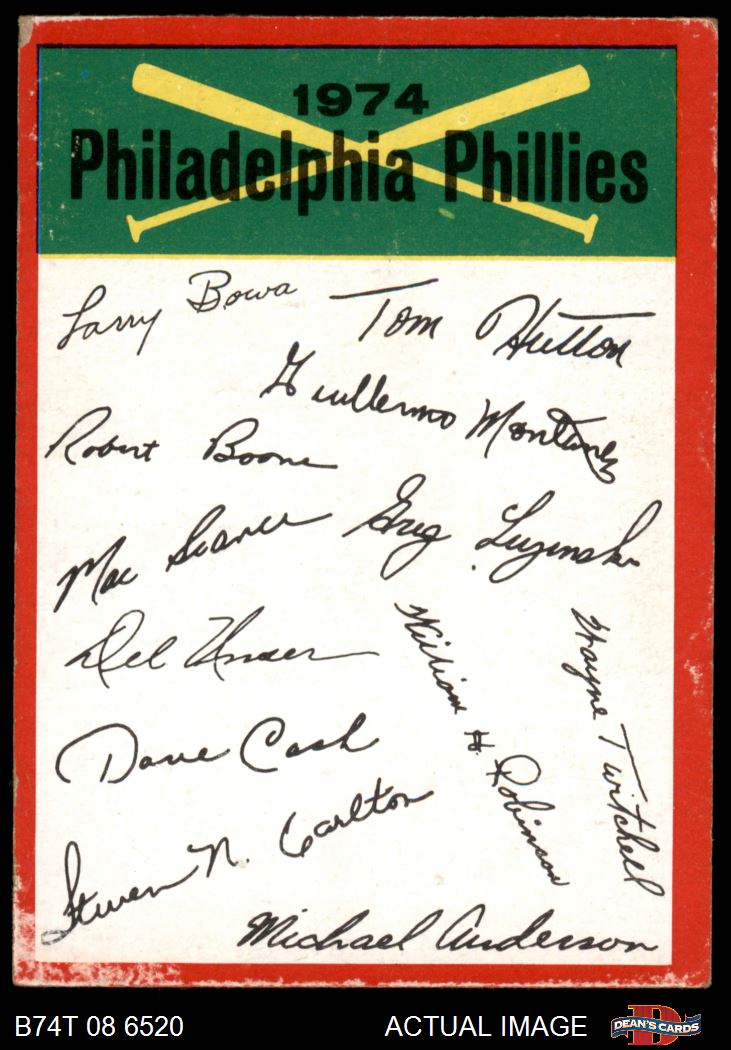 1974
Philadelphia Phillies
Larry Bowa
Tom Hutton
Guillermo Montanez
Robert Boone
Mac Scarce
Greg Luzinski
Del Unser
William H. Robinson
Wayne Twitchell
Dave Cash
Steven N. Carlton
Michael Anderson
B74T 08 6520
ACTUAL IMAGE
DEAN'S CARDS